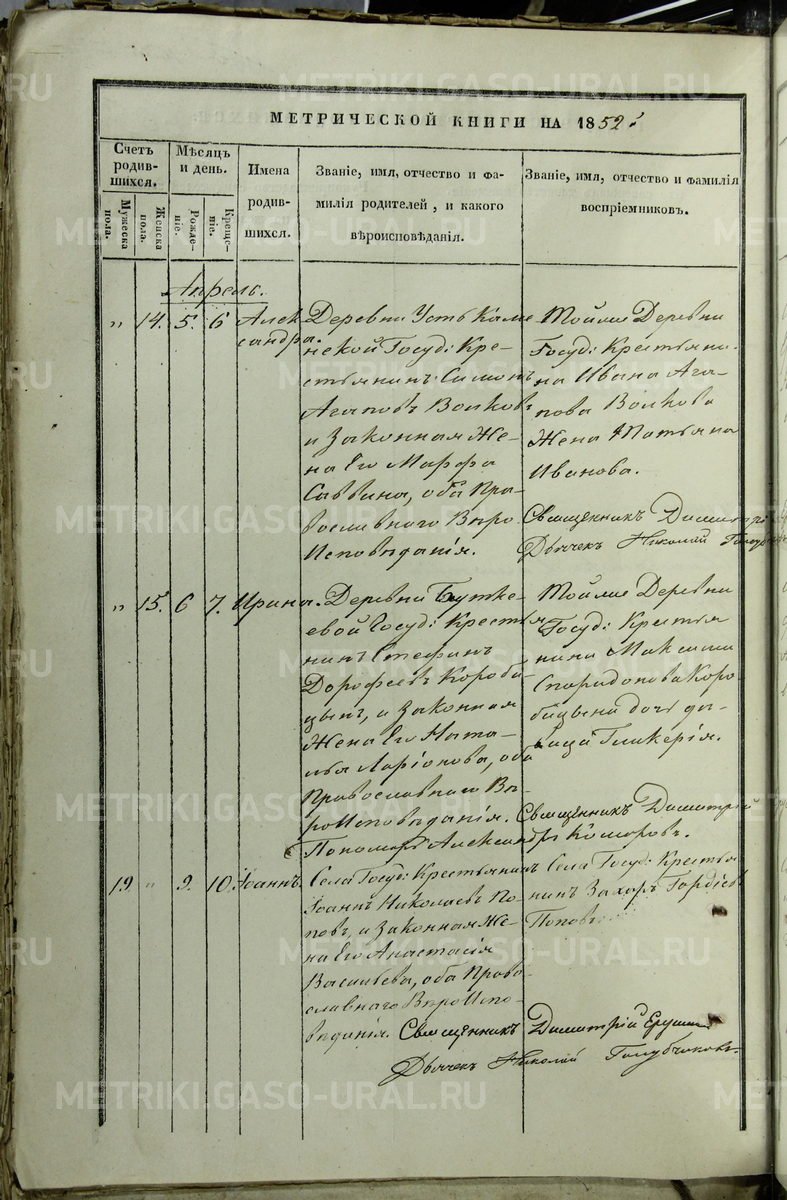 МЕТРИЧЕСКОЙ КНИГИ НА 1852.
Счетъ родившихся.
Мужеска пола.
Женска пола.
Мѣсяцъ и день.
Рожденіе.
Крещеніе.
Имена родившихся.
Званіе, имя, отчество и фамилія родителей, и какого вѣроисповѣданія.
Званіе, имя, отчество и фамилія воспріемниковъ.
Апрель.
" 14. 5. 6 Александра.
Деревни Усть Каме
нской Госуд: Кре-
стьянинъ Симонъ
Агаповъ Волковъ
и Законная Же-
на Его Марфа
Саввина, оба Пра-
вославнаго Вѣро
Исповѣданія.
Тойже Деревни
Госуд: Крестьяни-
на Ивана Ага-
пова Волкова
Жена Татьяна
Иванова.
Священникъ Димитрі
Дьячекъ Николай Голуб
" 15. 6 7. Ирина.
Деревни Бутке-
евой Госуд: Крестья
нинъ Стефанъ
Дорофеевъ Короби-
цынъ, и Законная
Жена Его Ната-
лья Ларіонова, оба
Православнаго Вѣ-
роИсповѣданія.
Тойже Деревни
Госуд: Крестья
нина Максима
Спиридонова Коро
бицына дочь дѣ-
вица Гликерія.
Священникъ Димитрій
Пономарь Александръ Комаровъ.
19 " 9. 10. Іоаннъ.
Села Госуд: Крестьянинъ
Іоаннъ Николаевъ По
повъ, и Законная Же-
на Его Анастасія
Васильева, оба Право-
славнаго ВѣроИспо-
вѣданія.
Села Госуд: Крестья
нинъ Захаръ Гордіевъ
Поповъ.
Священникъ Димитрій
Дьячекъ Николай Голубчиковъ.
METRIKI.GASO-URAL.RU